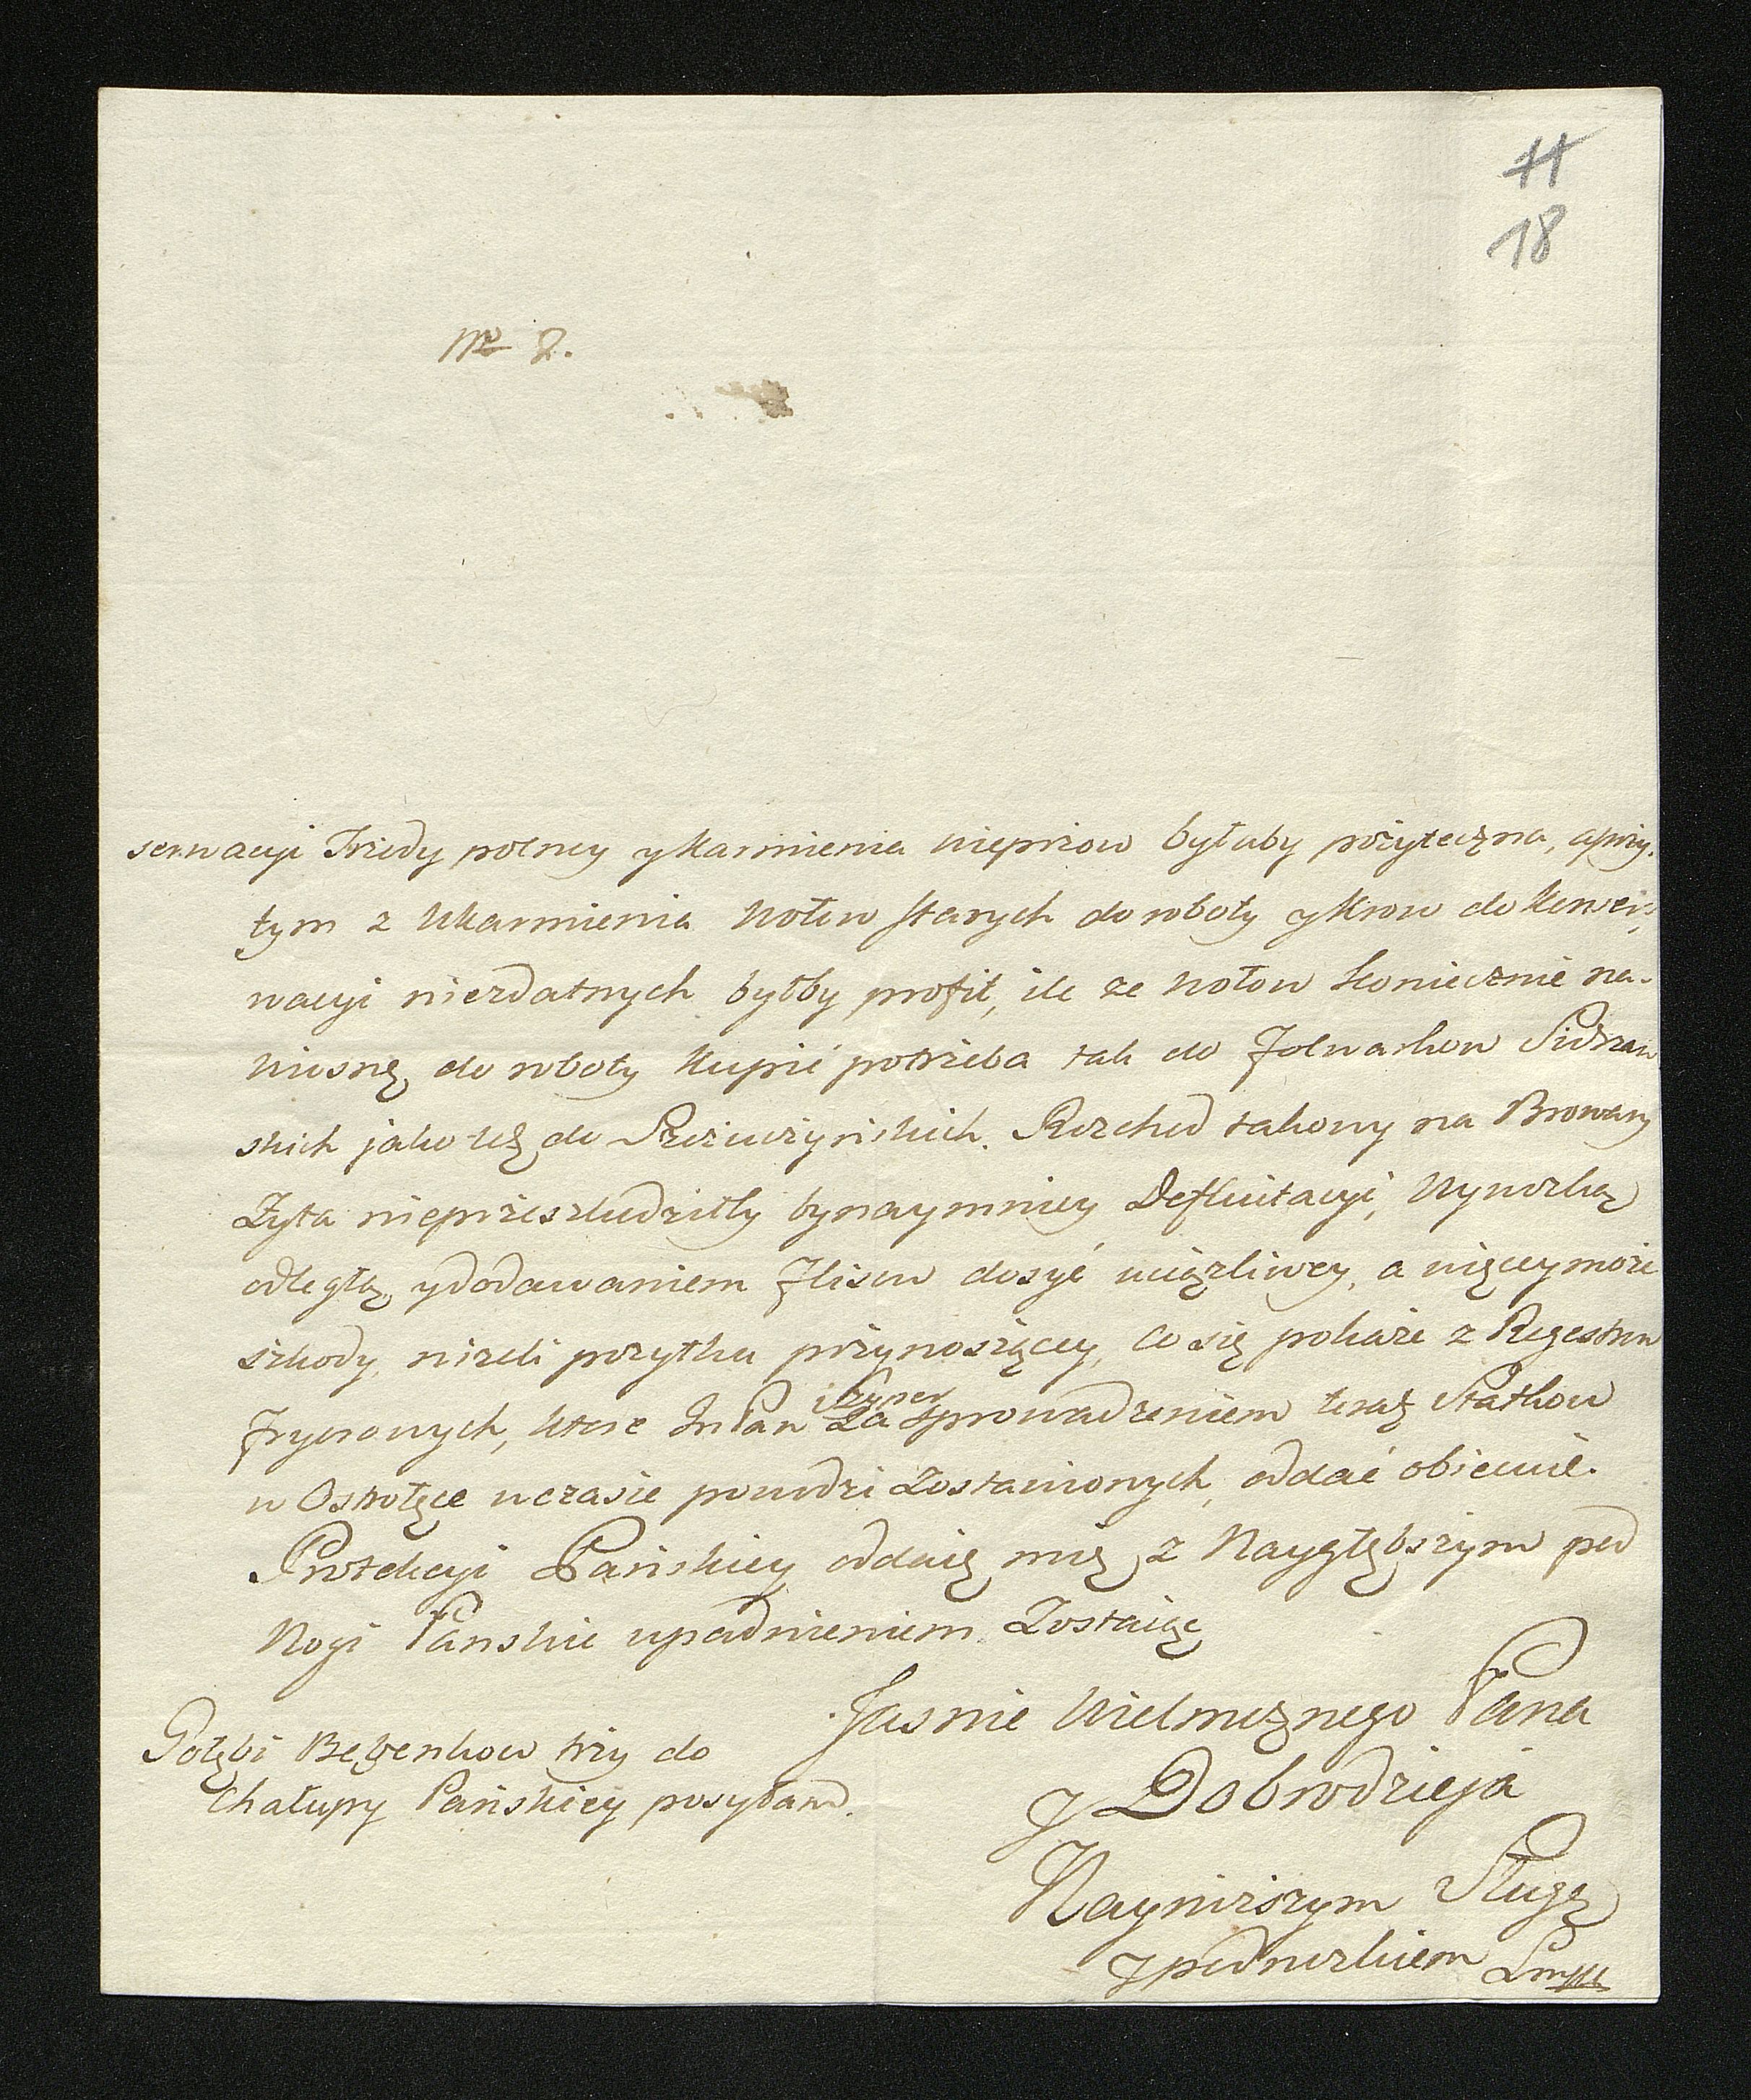 11
18
No 2.
serwacyi Trzedy polney y Karmienia wieprzow byłaby pożyteczna, aprzy-
tym z Ukarmienia Wołow starych do roboty y Krow do Konser,
wacyi niezdatnych byłby profit, ile że Wołow koniecznie na-
wiosnę do roboty kupić potrzeba tak do Folwarkow Sidrzan
skich jako też do Szczuczyńskich. Rozchod takowy na Browary
Żyta nieprzeszkodziłby bynaymniey Defluitacyi, Wywozką
odległą, y dodawaniem Flisow dosyć uciążliwey, a więcey może
szkody, niżeli pożytku przynoszącey, co się pokaże z Regestrow
Frycowych, ktore Im Pan Za sprowadzeniem teraz Statkow
w Ostrołęce w czasie powodzi Zostawionych, oddać obiecuie.
Protekcyi Pańskiey oddaię mię, z Naygłębszym pod
Nogi Pańskie upadnieniem Zostaię
Jasnie Wielmożnego Pana
y Dobrodzieja
Nayniższym Sługą
y podnożkiem
Gołębi Bębenkow trzy do
Chałupy Pańskiey posyłam.